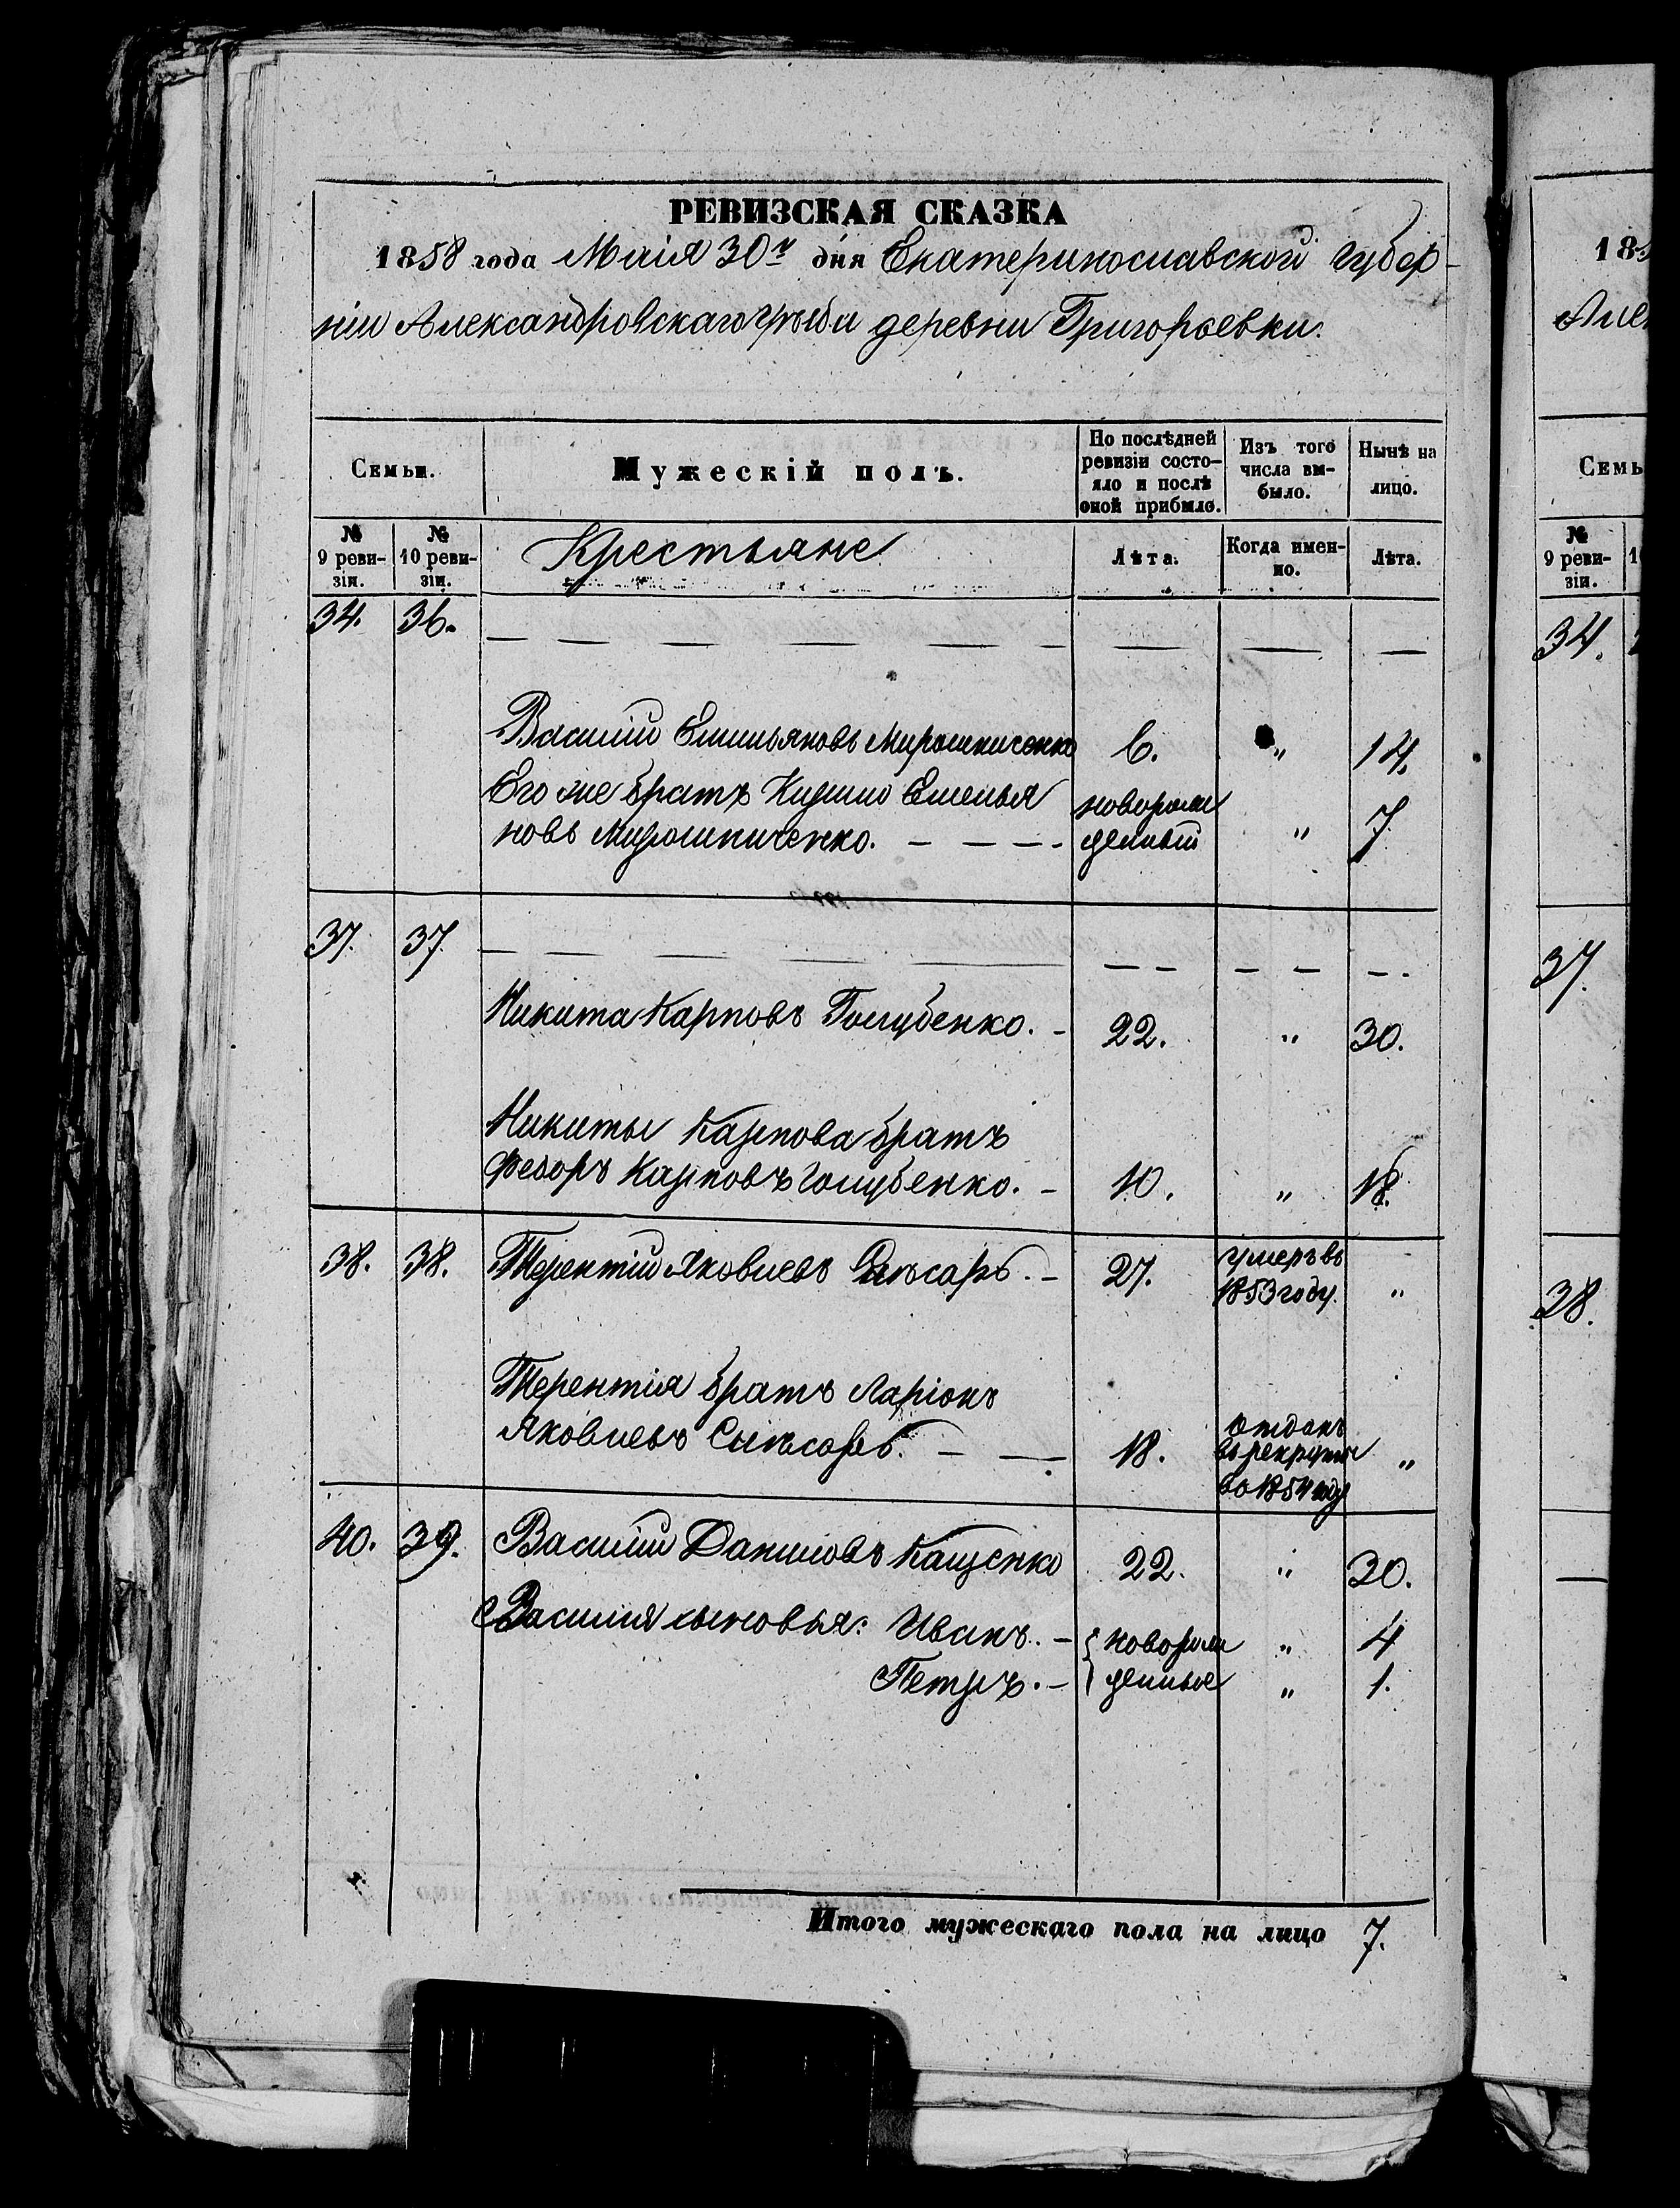 РЕВИЗСКАЯ СКАЗКА
1858 года Маія 30го дня Екатеринославской губер-
ніи Александровскаго уѣзда деревни Григорьевки.
Семьи.
Мужескій полъ.
По послѣдней ревизіи состо-
яло и послѣ оной прибыло.
Изъ того числа вы-
было.
Нынѣ на лицо.
№ 9 реви-
зіи.
№ 10 реви-
зіи.
Крестьяне
Лѣта.
Когда имен-
но.
Лѣта.
34. 36. — — — — — — — —
Василій Емильяновъ Мирошниченко 6. „ 14.
Его же братъ Емелья новорож
новъ Мирошниченко. — — — — денный „ 7
37. 37 — — — — — — — — — — —
Никита Карповъ Голубенко. — 22. „ 30.
Никиты Карпова братъ
Федоръ Карповъ Голубенко. — 10. „ 18.
38. 38. Терентій Яковлевъ — 27. умеръ въ 1853 году. „
Терентія братъ Ларіонъ
Яковлевъ — — 18. отданъ въ рекруты во 1854 году „
40. 39. Василій Даниловъ Кащенко 22. „ 30.
Василия сыновья: Иванъ. — новорож „ 4
Петръ. — денные „ 1.
Итого мужескаго пола на лицо 7.
185
Алек
Семь
№ 9 реви-
зіи.
34.
37.
38.